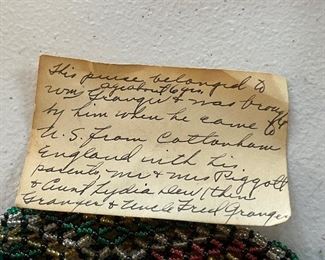 This purse belonged to
aged about 6 yrs.
Wm Granger & was brought
by him when he came to
U.S. from Cottonham
England with his
parents Mr & Mrs Piggott
& Aunt Lydia Dew (then
Granger & Uncle Fred Granger